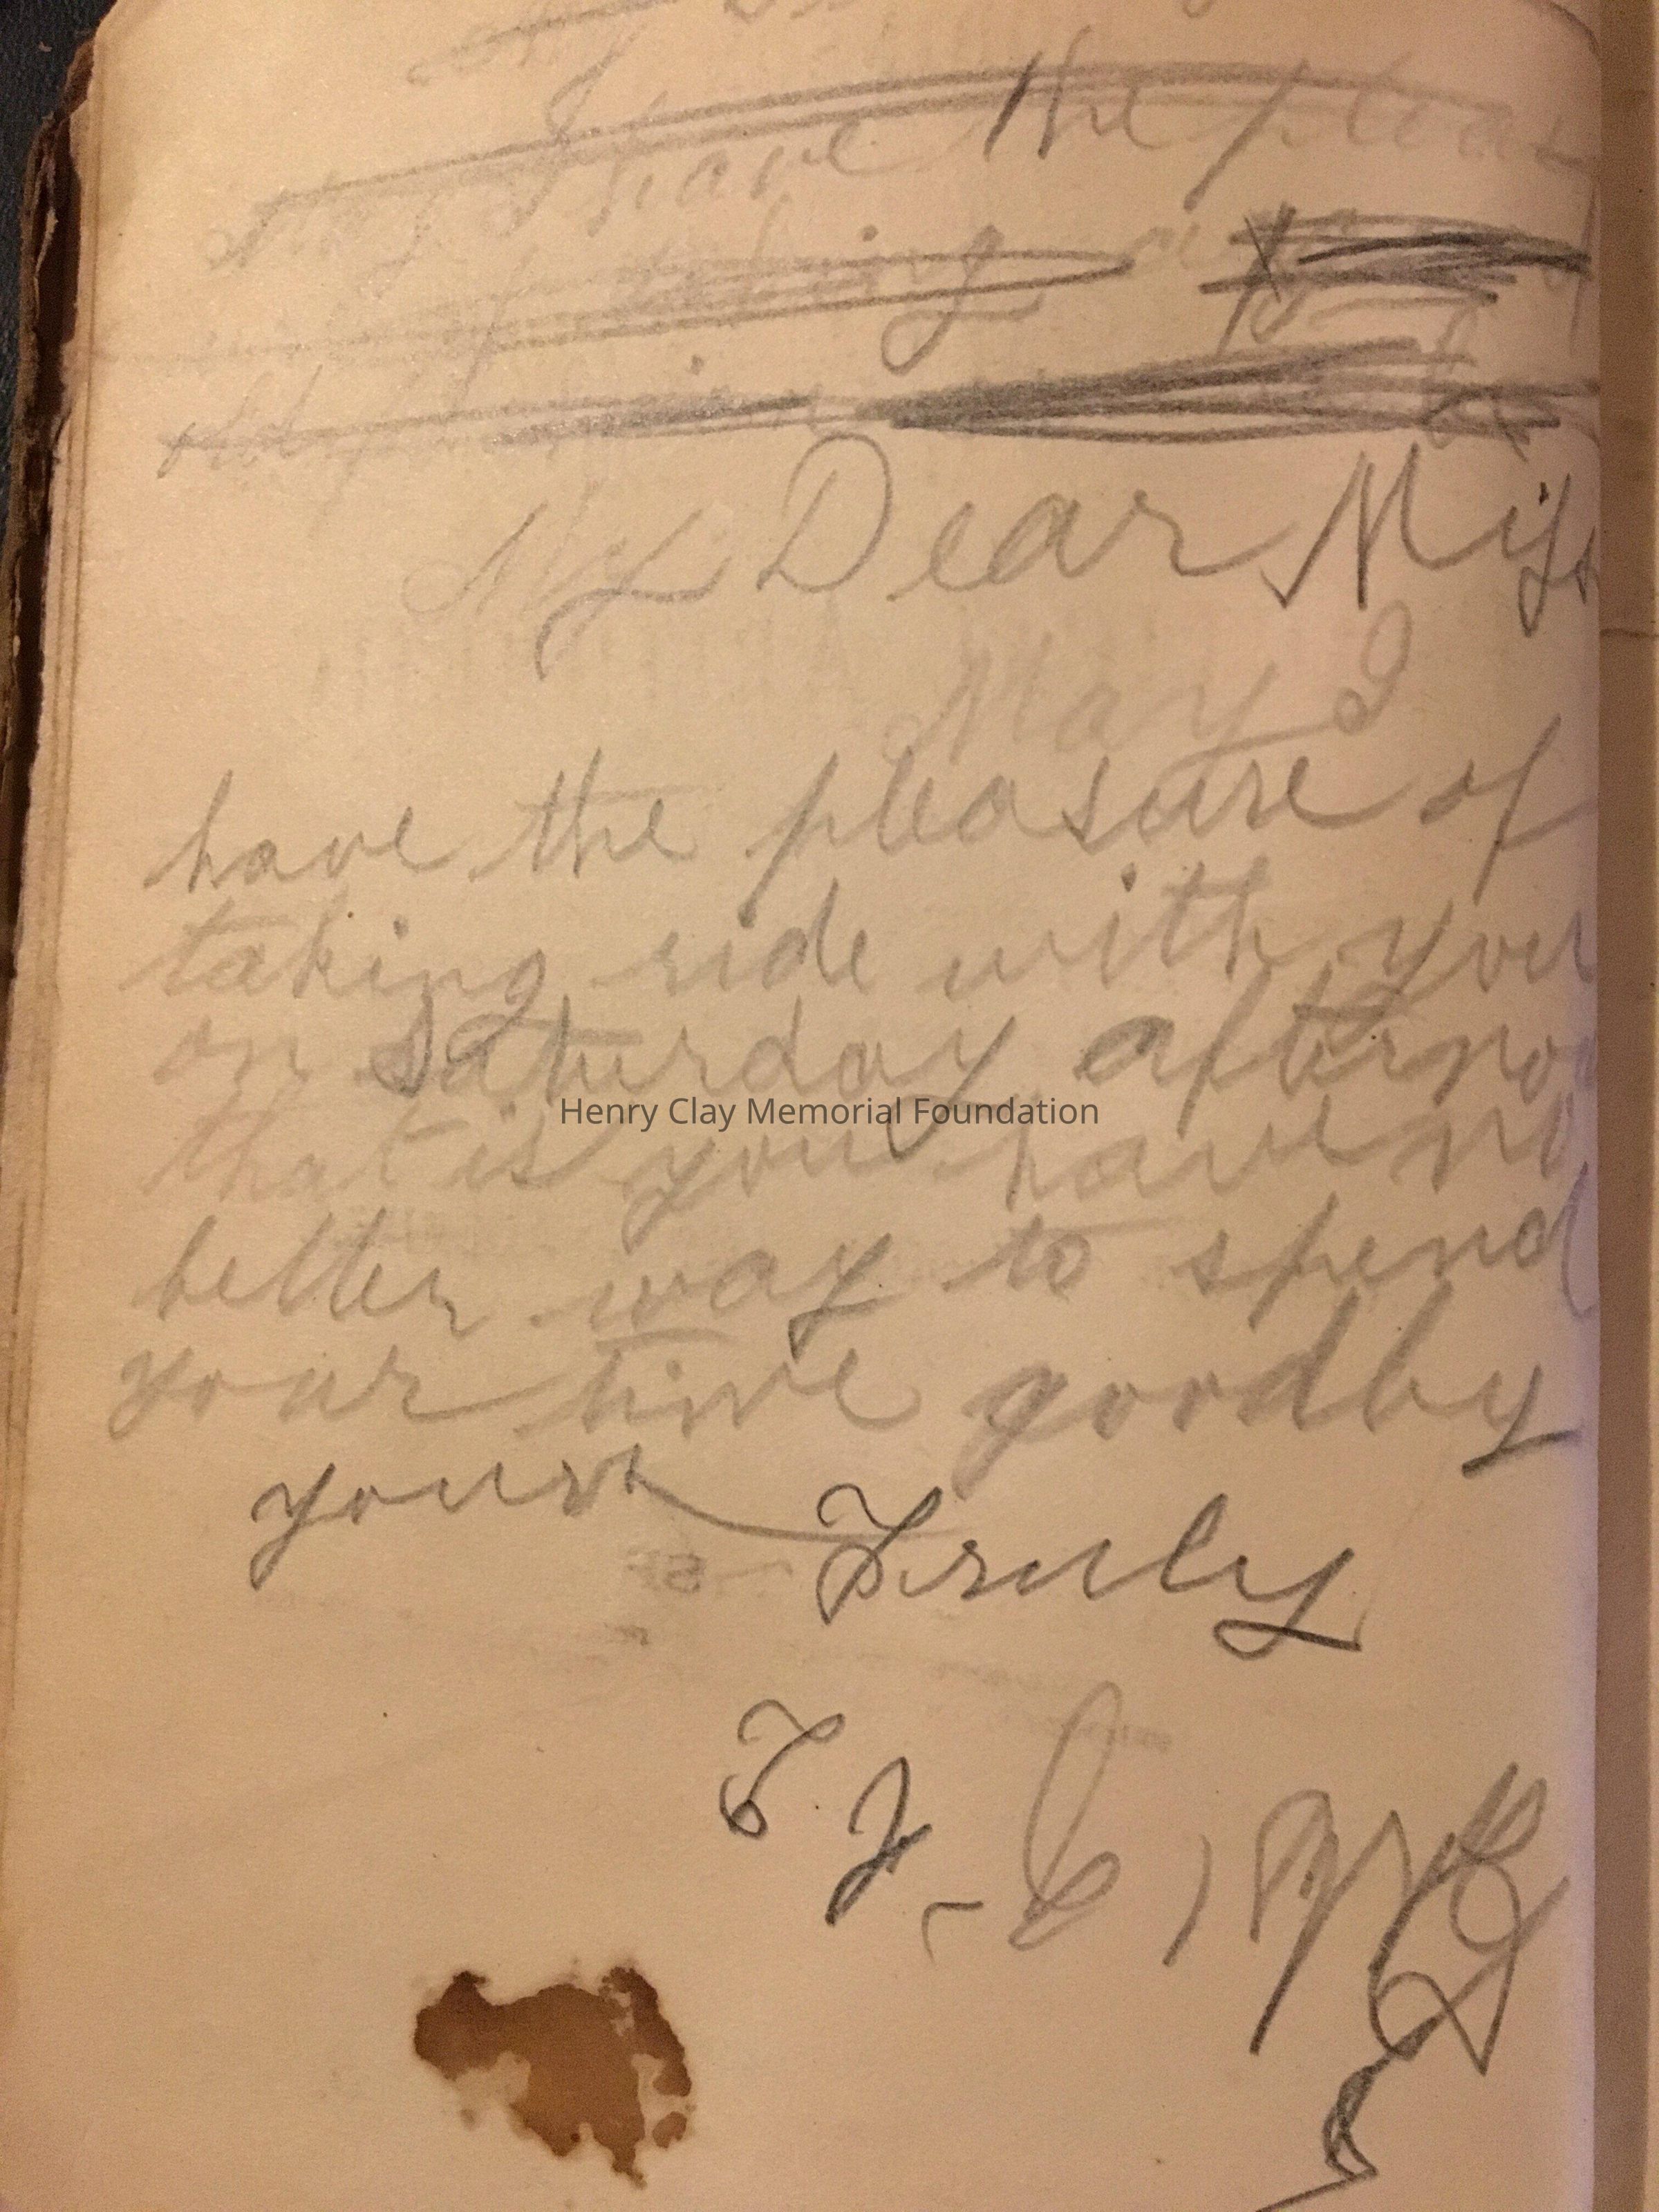 May I have the pleas
taking a
old
My Dear Miss
May I
have the pleasure of
taking ride with you
on Saturday afternoo
that is you have no
better way to spend
your time goodby
yours Truly
T. J.
Henry Clay Memorial Foundation